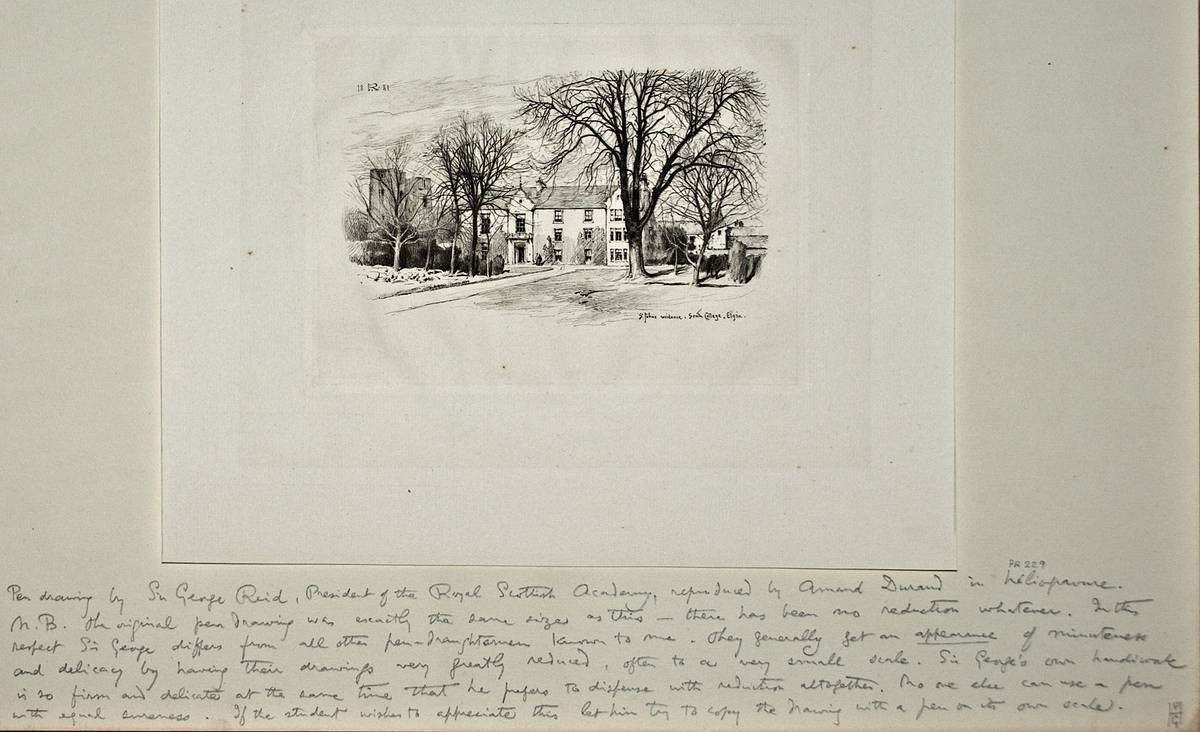 18 R 81
St Johns residence. South College. Elgin.
PR 229
Pen drawing by Sir George Reid, President of the Royal Scottish Academy, reproduced by Amand Durand in héliogravure.
N.B. The original pen drawing was exactly the same size as this — there has been no reduction whatever. In this
respect Sir George differs from all other pen-draughtsmen known to me. They generally get an appearance of minuteness
and delicacy by having their drawings very greatly reduced, often to a very small scale. Sir George's own handiwork
is so firm and delicate at the same time that he prefers to dispense with reduction altogether. No one else can use a pen
with equal sureness. If the student wishes to appreciate this let him try to copy the drawing with a pen on its own scale.